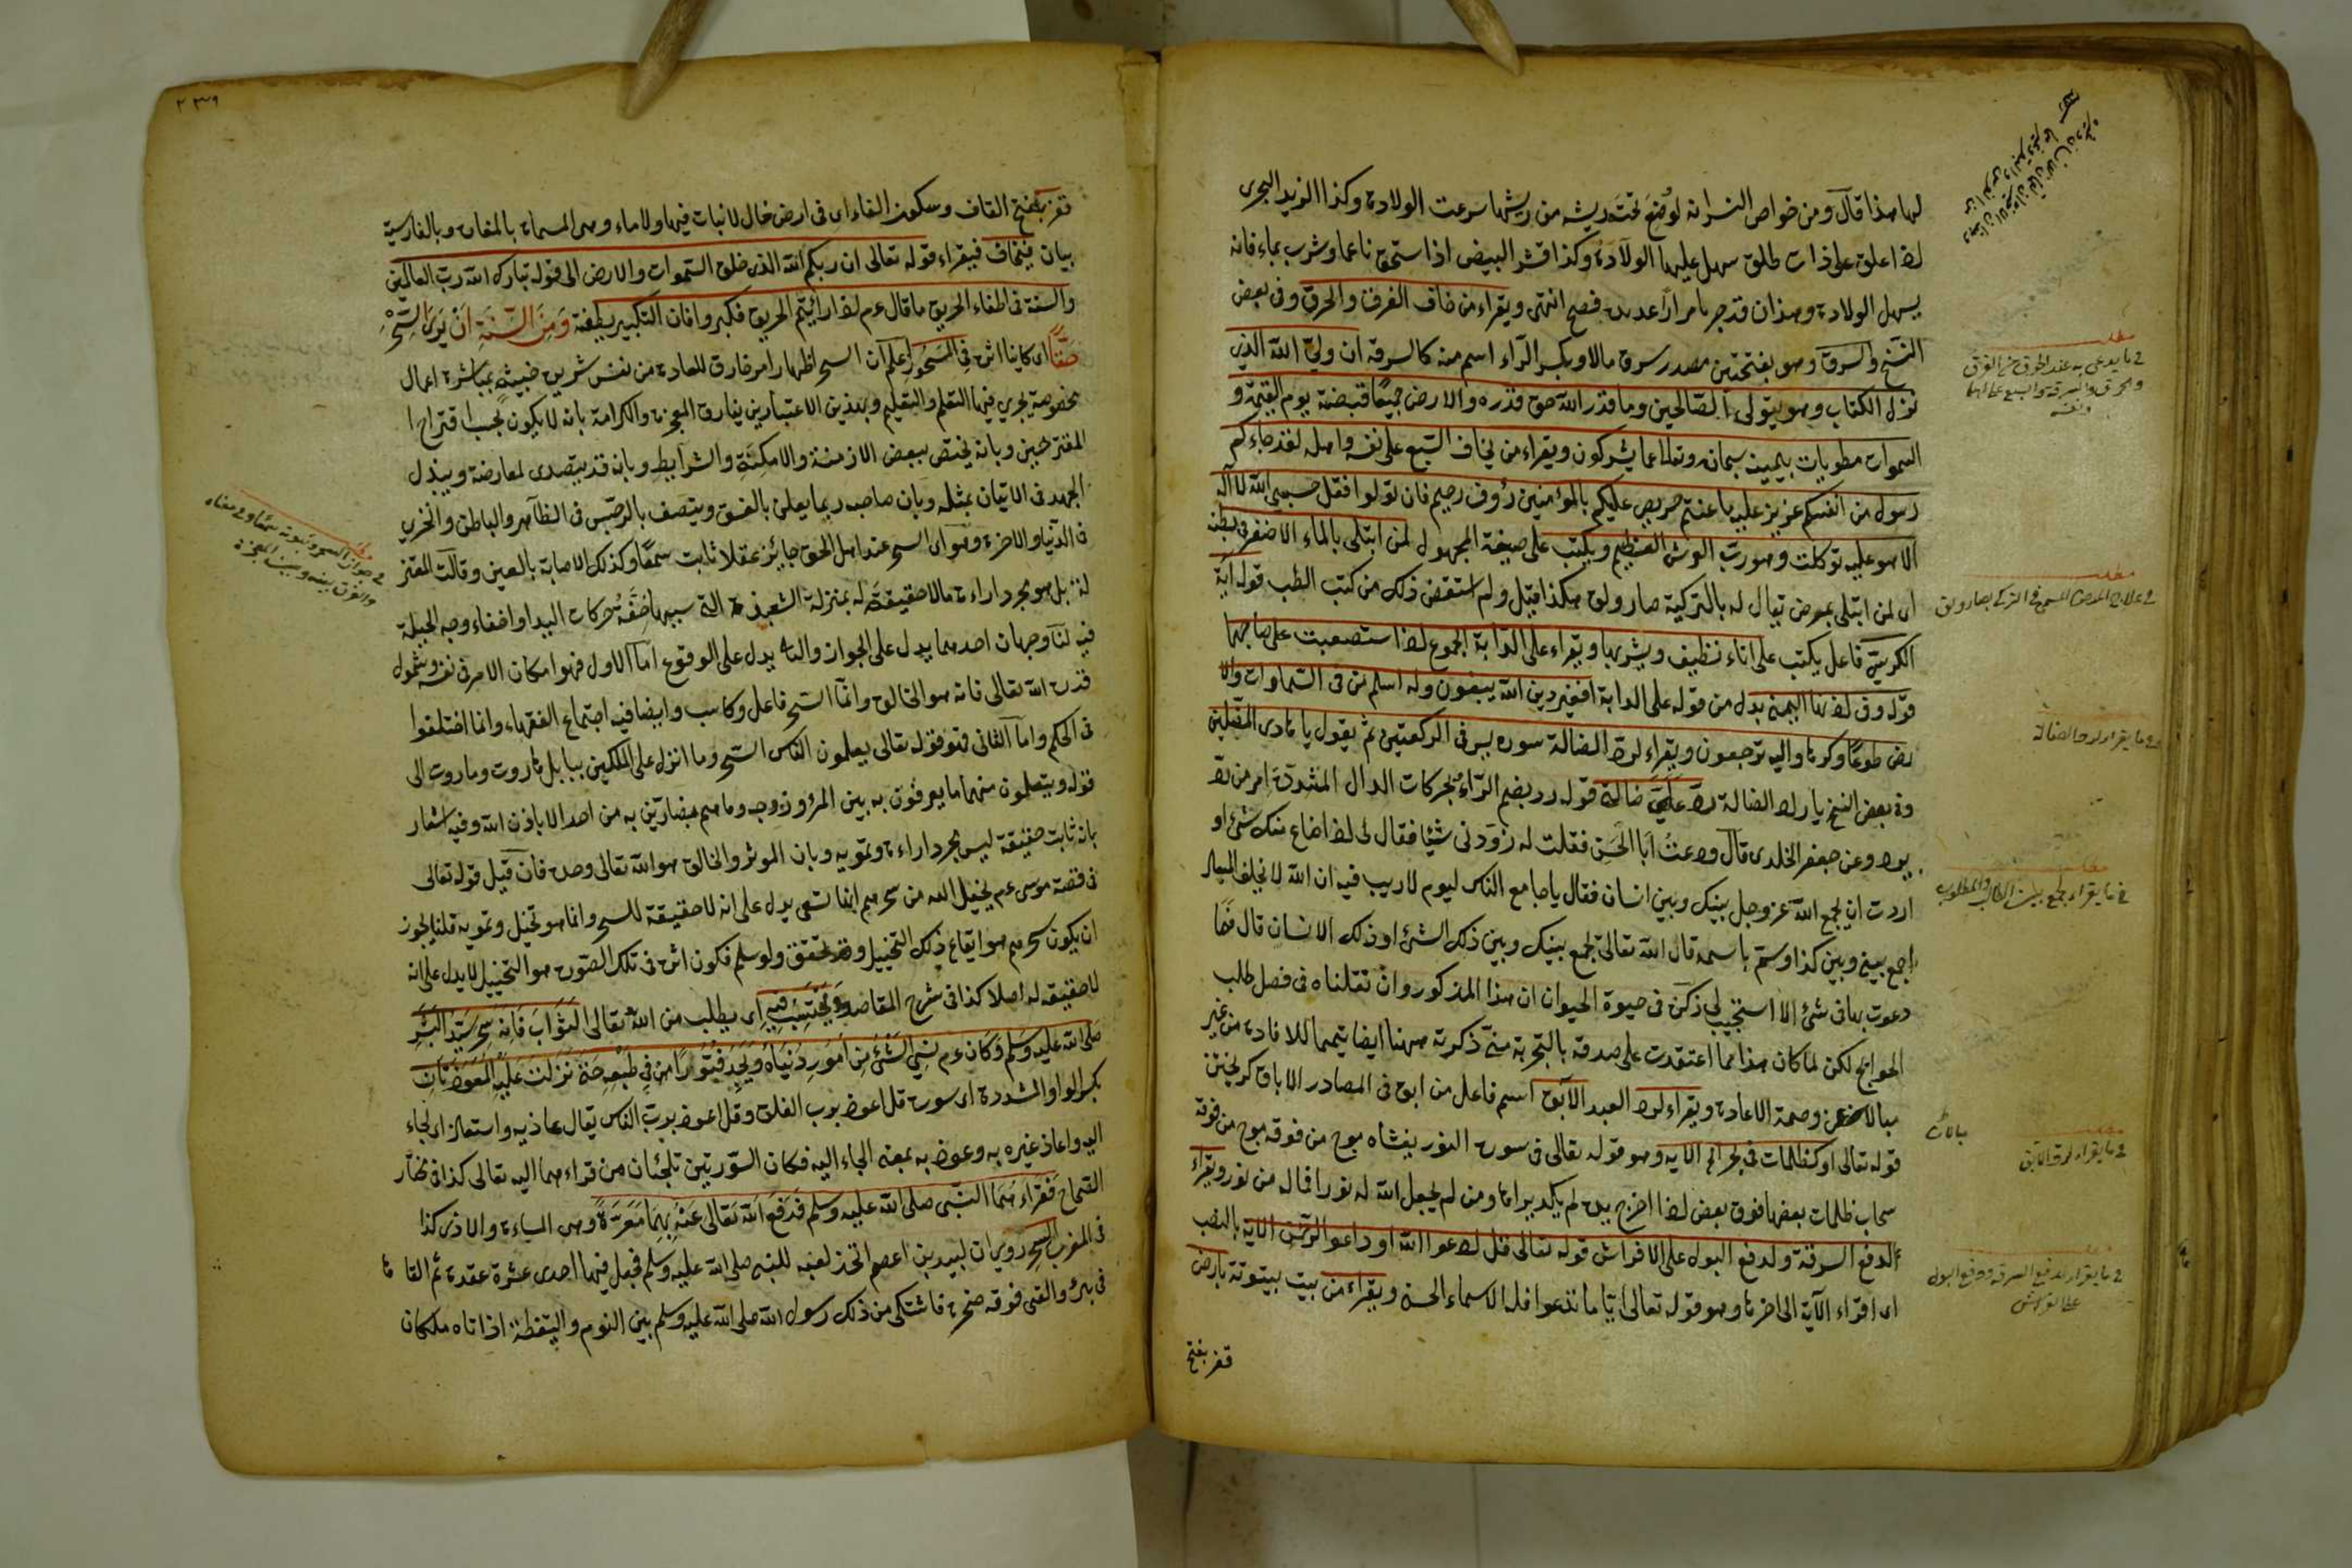 لها هذا قال ومن خواص النسر انه لو وضع تحت ريشه من ريشها سرعت الولادة وكذا الزبد البحري
اذا علق على ذات طلق سهل عليها الولادة وكذا قشر البيض اذا سحق ناعما وشرب بماء فانه
يسهل الولادة وهذان قد جربا مرارا عديدة فصح انتهى ويقراء من خاف الغرق والحرق وفى بعض
النسخ والسرق وهو بفتحتين مصدر سرق مالا وبكسر الراء اسم منه كالسرقة ان وليى الله الذى
نزل الكتاب وهو يتولى الصالحين وما قدر الله حق قدره والارض جميعا قبضته يوم القيمة و
السموات مطويات بيمينه سبحانه وتعالى عما يشركون ويقراء من يخاف السبع على نفسه واهله لقد جاءكم
رسول من انفسكم عزيز عليه ما عنتم حريص عليكم بالمؤمنين رؤف رحيم فان تولوا فقل حسبى الله لا اله
الا هو عليه توكلت وهو رب العرش العظيم ويكتب على صيغة المجهول لمن ابتلى بالماء الاصفر فى بطنه
اى لمن ابتلى بمرض يقال له بالتركية صارولق هكذا قيل ولم استقص ذلك من كتب الطب قوله آية
الكرسى فاعل يكتب على اناء نظيف ويشربها ويقراء على الدابة الجموع اذا استصعبت على صاحبها
قوله فى اذنها اليمنى بدل من قوله على الدابة افغير دين الله يبغون وله اسلم من فى السماوات والا
رض طوعا وكرها واليه ترجعون ويقراء لرد الضالة سورة يس فى الركعتين ثم يقول يا هادى المضلين
وفى بعض النسخ يا راد الضالة رد على ضالتى قوله رد بضم الراء بحركات الدال المشددة امر من رد
يرد وعن جعفر الخلدى قال ودعت ابا الحسن فقلت له زودنى شيئا فقال لى اذا ضاع منك شئ او
اردت ان يجمع الله عز وجل بينك وبين انسان فقال يا جامع الناس ليوم لا ريب فيه ان الله لا يخلف الميعاد
اجمع بينى وبين كذا وسم باسمه قال الله تعالى يجمع بينك وبين ذلك الشئ او ذلك الانسان قال فما
دعوت بها فى شئ الا استجيب لى ذكره فى حيوة الحيوان ان هذا المذكور وان نقلناه فى فصل طلب
الحوائج لكن لما كان هذا مما اعتقدت على صدقه بالتجربة منى ذكرته ههنا ايضا تتميما للافادة من غير
مبالاة عن وصمة الاعادة ويقراء لرد العبد الآبق اسم فاعل من ابق فى المصادر الاباق كريختن
قوله تعالى او كظلمات فى بحر لجى الآية وهو قوله تعالى فى سورة النور يغشاه موج من فوقه موج من فوقه
سحاب ظلمات بعضها فوق بعض اذا اخرج يده لم يكد يراها ومن لم يجعل الله له نورا فما له من نور ويقراء
لدفع السرقة ولدفع البول على الفراش قوله تعالى قل ادعوا الله او ادعوا الرحمن الآية بالنصب
اى اقراء الآية الى اخرها وهو قوله تعالى ايا ما تدعوا فله الاسماء الحسنى ويقراء من بيت بيتوتة بارض
قفر بفتح
مطلب
فى ما يدعى به عند الحرق
مطلب
مطلب
فى ما يقراء لجمع بين الطالب والمطلوب
فى ما يقراء لرد الآبق
فى ما يقراء لدفع السرقة ودفع البول
على الفراش
قفر بفتح القاف وسكون الفاء اى فى ارض خال لا نبات فيها ولا ماء وهى المسماة بالمفازة وبالفارسية
بيابان يخاف فيقراء قوله تعالى ان ربكم الله الذى خلق السموات والارض الى قوله تبارك الله رب العالمين
والسنة فى اطفاء الحريق ما قال عم اذا رأيتم الحريق فكبروا فان التكبير يطفئه ومن السنة ان يرى السحر
حقا اى كاينا اثره فى المسحور اعلم ان السحر اظهار امر خارق للعادة من نفس شريرة خبيثة بمباشرة اعمال
مخصوصة يجرى فيها التعلم والتعليم وبهذين الاعتبارين يفارق المعجزة والكرامة بانه لا يكون بحسب اقتراح ا
المقترحين وبانه يختص ببعض الازمنة والامكنة والشرايط وبانه قد يتصدى لمعارضة ويبذل
الجهد فى الاتيان بمثله وبان صاحبه ربما يعلن بالفسق ويتصف بالرجس فى الظاهر والباطن والخزى
فى الدنيا والاخرة وهو اى السحر عند اهل الحق جايز عقلا ثابت سمعا وكذلك الاصابة بالعين وقالت المعتز
لة بل هو مجرد اراءة ما لا حقيقة له بمنزلة الشعبذة التى سببها خفة حركات اليد او اخفاء وجه الحيلة
فيه لنا وجهان احدهما يدل على الجواز والثانى يدل على الوقوع اما الاول فهو امكان الامر فى نفسه وشمول
قدرة الله تعالى فانه هو الخالق وانما الساحر فاعل وكاسب وايضا فيه اجتماع الفقهاء وانما اختلفوا
فى الحكم واما الثانى فهو قوله تعالى يعلمون الناس السحر وما انزل على الملكين ببابل هاروت وماروت الى
قوله ويتعلمون منهما ما يفرقون به بين المرء وزوجه وما هم بضارين به من احد الا باذن الله وفيه اشعار
بانه ثابت حقيقة ليس مجرد اراءة وتمويه وبان الموثر والخالق هو الله تعالى وحده فان قيل قوله تعالى
فى قصة موسى عم يخيل اليه من سحرهم انها تسعى يدل على انه لا حقيقة للسحر وانما هو تخيل وتمويه قلنا يجوز
ان يكون سحرهم هو ايقاع ذلك التخييل وقد تحقق ولو سلم فكون اثره فى تلك الصورة هو التخييل لا يدل على انه
لا حقيقة له اصلا كذا فى شرح المقاصد ويحتسب فيه اى يطلب من الله تعالى الثواب فانه سحر سيد البشر
صلى الله عليه وسلم وكان عم نسى الشئ من امور دنياه ويجد فتورا من فى طبعه حتى نزلت عليه المعوذتان
بكسر الواو المشددة اى سورة قل اعوذ برب الفلق وقل اعوذ برب الناس يقال عاذ به واستعاذ اى لجاء
اليه واعاذ غيره به وعوذ به بمعنى الجاء اليه فكان السورتين تلجئان من قراءهما اليه تعالى كذا فى مختار
الصحاح فقراءهما النبى صلى الله عليه وسلم فدفع الله تعالى عنه بهما معرة وهى المساءة والاذى كذا
فى المغرب السحر روى ان لبيد بن اعصم اتخذ لعبة للنبى صلى الله عليه وسلم فجعل فيها احدى عشرة عقدة ثم القاها
فى بئر والقى فوقه صخرة فاشتكى من ذلك رسول الله صلى الله عليه وسلم بين النوم واليقظة اذ اتاه ملكان
مطلب
والفرق بينه وبين المعجزة